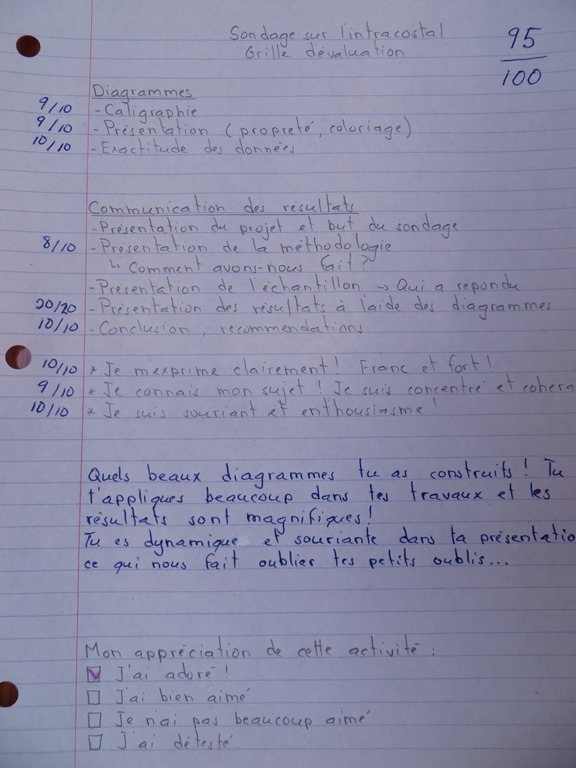 Sondage sur l'intracostal
Grille dévaluation
95
100
Diagrammes
9/10 - Caligraphie
9/10 - Présentation (propreté, coloriage)
10/10 - Exactitude des données
Communication des résultats
- Présentation du projet et but du sondage
8/10 - Présentation de la méthodologie
↳ Comment avons-nous fait?
- Présentation de l'échantillon → Qui a repondu
20/20 - Présentation des résultats à l'aide des diagrammes
10/10 - Conclusion, recommendations
10/10 * Je m'exprime clairement! Franc et fort!
9/10 * Je connais mon sujet! Je suis concentré et
10/10 * Je suis souriant et enthousiasme!
Quels beaux diagrammes tu as construits! Tu
t'appliques beaucoup dans tes travaux et les
résultats sont magnifiques!
Tu es dynamique et souriante dans ta présentatio
ce qui nous fait oublier tes petits oublis...
Mon appréciation de cette activité :
☑ J'ai adoré!
☐ J'ai bien aimé
☐ Je n'ai pas beaucoup aimé
☐ J'ai détesté